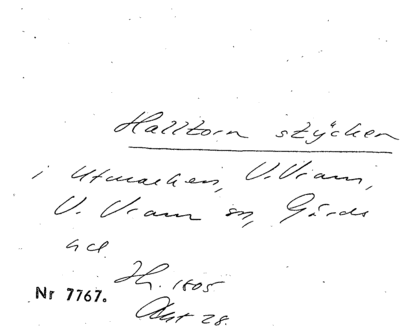 Halltorn stycken
i utmarken, V. Vram,
V. Vram sn, Gärds
hd.
Jh. 1805
Nr 7767.
Akt 28.